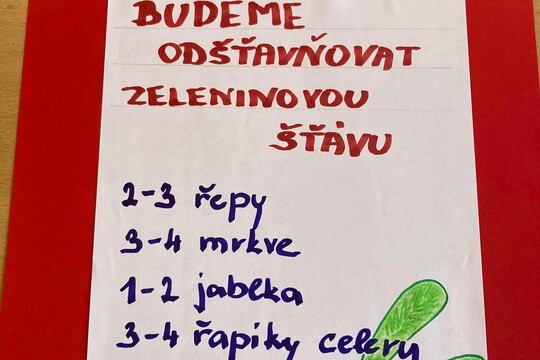 BUDEME
ODŠŤAVŇOVAT
ZELENINOVOU
ŠŤÁVU
2-3 řepy
3-4 mrkve
1-2 jablka
3-4 řapíky celeru